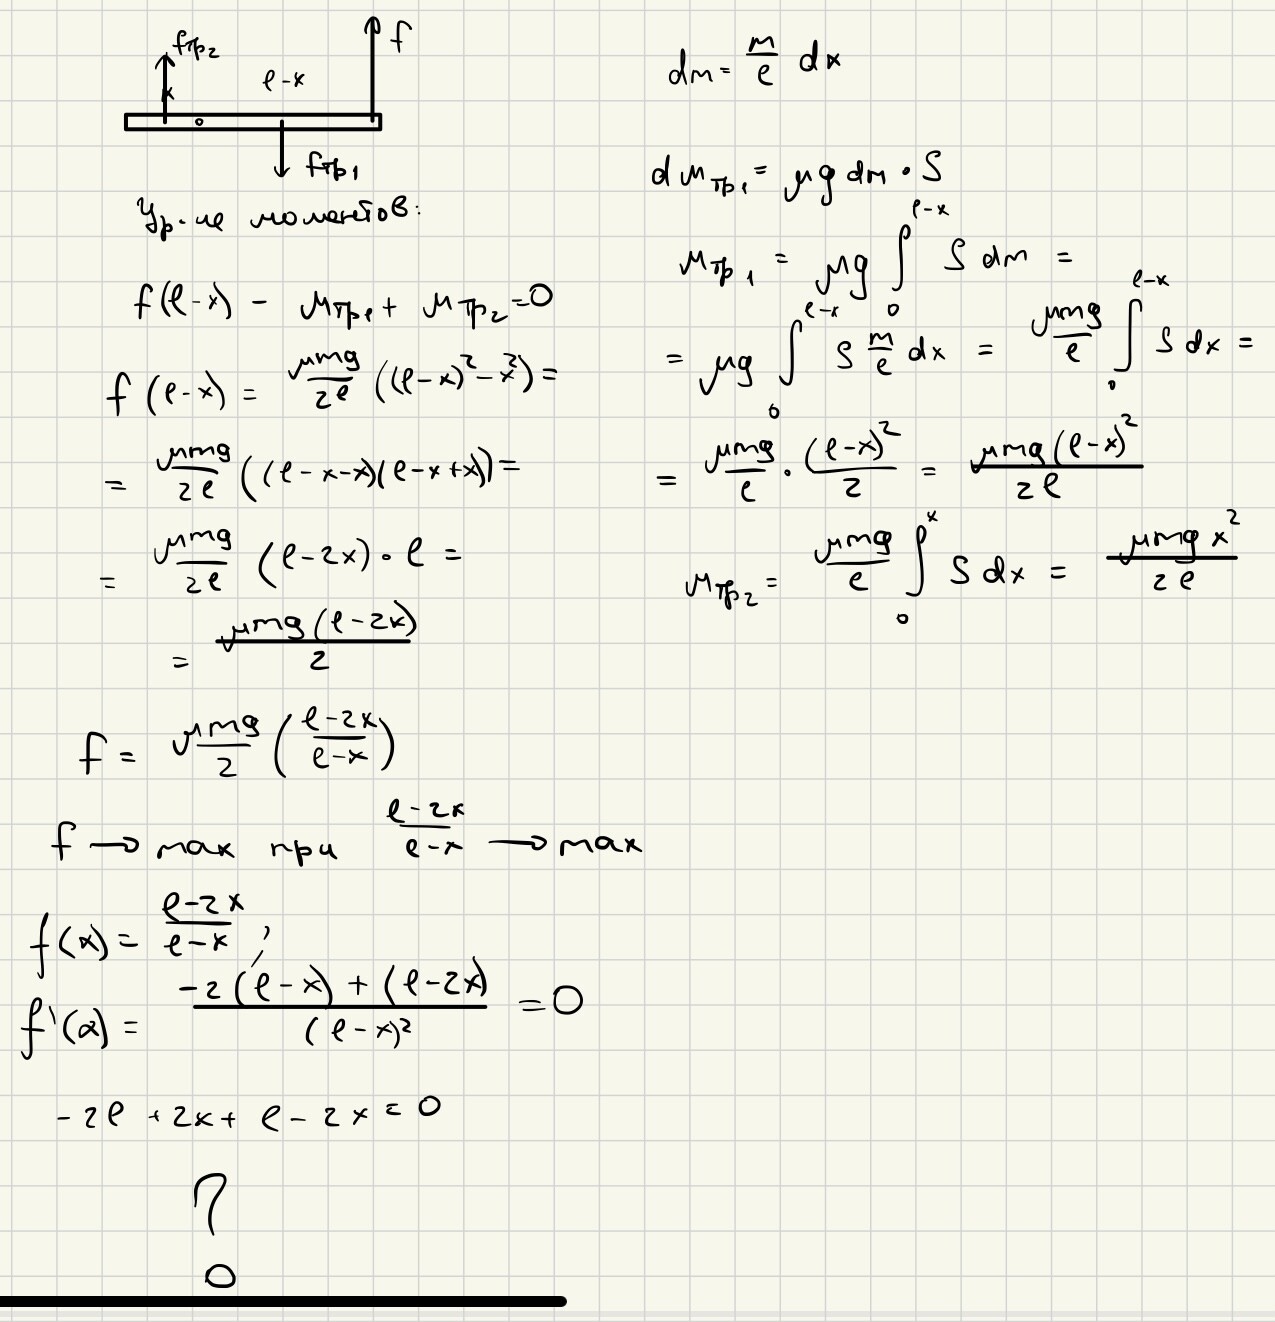 fтр₂
f
x
l-x
o
fтр₁
Ур-ие моментов:
f(l-x) - Mтр₁ + Mтр₂ = 0
f(l-x) = μmg/2l ((l-x)² - x²) =
= μmg/2l ((l-x-x)(l-x+x)) =
= μmg/2l (l-2x) · l =
= μmg(l-2x)/2
f = μmg/2 (l-2x/l-x)
f → max при l-2x/l-x → max
f(x) = l-2x/l-x ;
f'(x) = -2(l-x) + (l-2x)/(l-x)² = 0
-2l + 2x + l - 2x = 0
?
dm = m/l dx
dMтр₁ = μg dm · S
Mтр₁ = μg ∫₀^(l-x) S dm =
= μg ∫₀^(l-x) S m/l dx = μmg/l ∫₀^(l-x) S dx =
= μmg/l · (l-x)²/2 = μmg(l-x)²/2l
Mтр₂ = μmg/l ∫₀^x S dx = μmg x²/2l